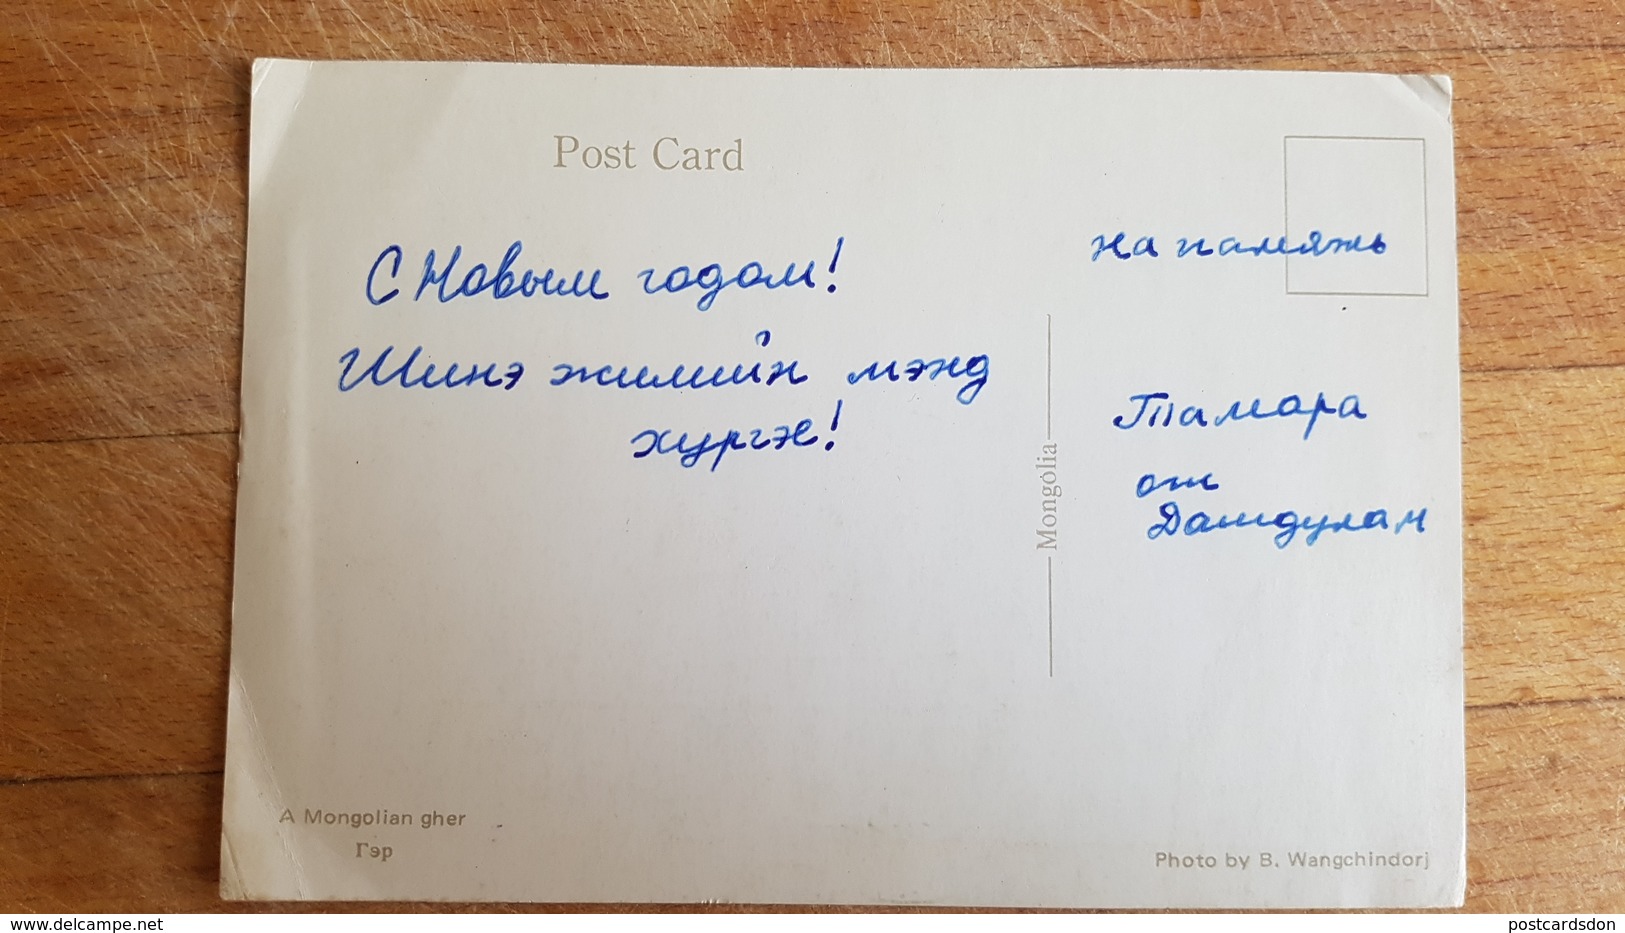 Post Card
С Новым годом!
Шинэ жилийн мэнд
хүргэе!
на память
Тамара
от
Дашдулам
Mongolia
A Mongolian gher
Гэр
Photo by B. Wangchindorj
www.delcampe.net
postcardsdon